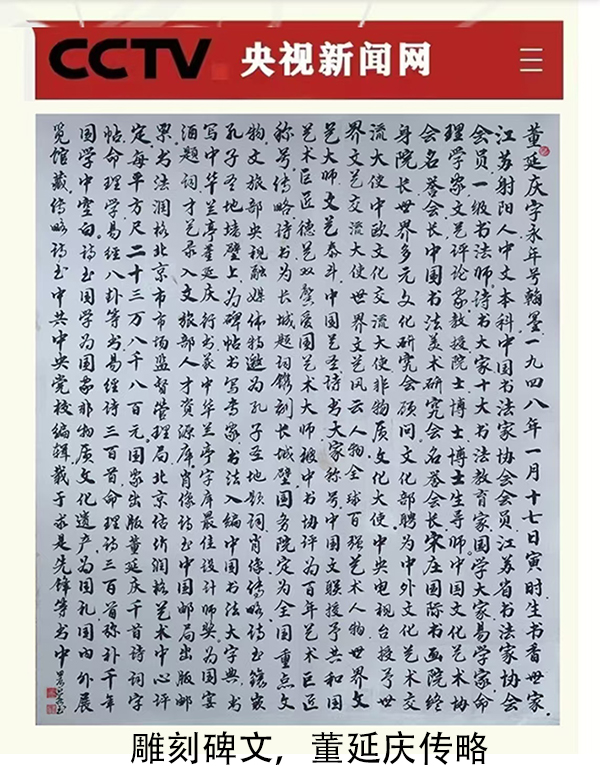 CCTV 央视新闻网
董延庆字永年号翰墨一九四八年一月十七日寅时生书香世家
江苏射阳人中文本科中国书法家协会会员江苏省书法家协会
会员一级书法师诗书大家十大书法教育家国学大家易学家命
理学家文艺评论家教授院士博士博士生导师中国文化艺术协
会名誉会长中国书法美术研究会名誉会长宋庄国际书画院终
身院长世界多元文化研究会顾问文化部聘为中外文化艺术交
流大使中欧文化交流大使非物质文化大使中央电视台授予世
界文艺交流大使世界文艺风云人物全球百强艺术人物世界文
艺大师文艺泰斗中国艺圣诗书大家称号中国文联授予共和国
艺术巨匠德艺双馨爱国艺术大师被中书协评为百年艺术巨匠
称号传略诗书为长城题词镌刻长城壁国务院定为全国重点文
物文旅部央视融媒体特邀为孔子圣地题词肖像传略诗书镌嵌
孔子圣地墙壁上为碑帖书写专家书法入编中国书法大字典书
写中华兰亭董延庆行书获中华兰亭字库最佳设计师奖为国宴
酒题词才艺录入文旅部人才资源库肖像诗书中国邮局出版邮
票书法润格北京市市场监督管理局北京估价润格艺术中心评
定每平方尺二十三万八千八百元国家出版董延庆千首诗词字
帖命理学易经八卦等书易经诗三百首命理诗三百首称补千年
国学中空白诗书国学为国家非物质文化遗产为国礼国内外展
览馆藏传略诗书中共中央党校编辑载于永是先锋等书中
雕刻碑文，董延庆传略